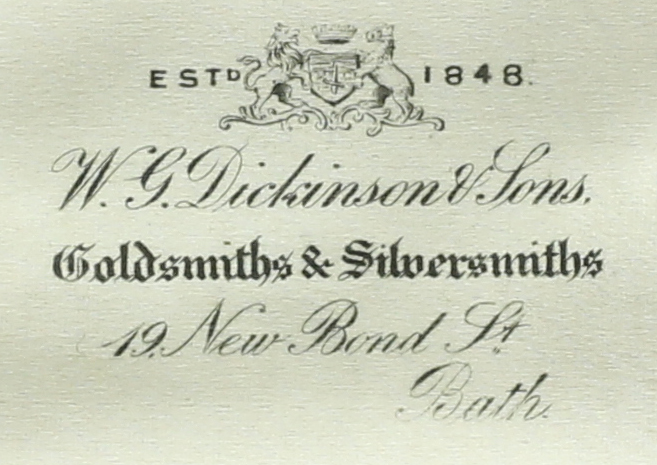 ESTD 1848.
W. G. Dickinson & Sons.
Goldsmiths & Silversmiths
19, New Bond St.
Bath.